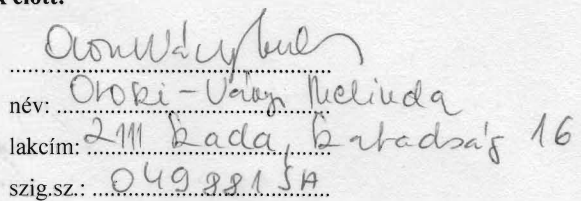 előtt:
név: Otoki-Vány Melinda
lakcím: 2111 Szada, Szabadság 16
szig.sz.: 049881SA